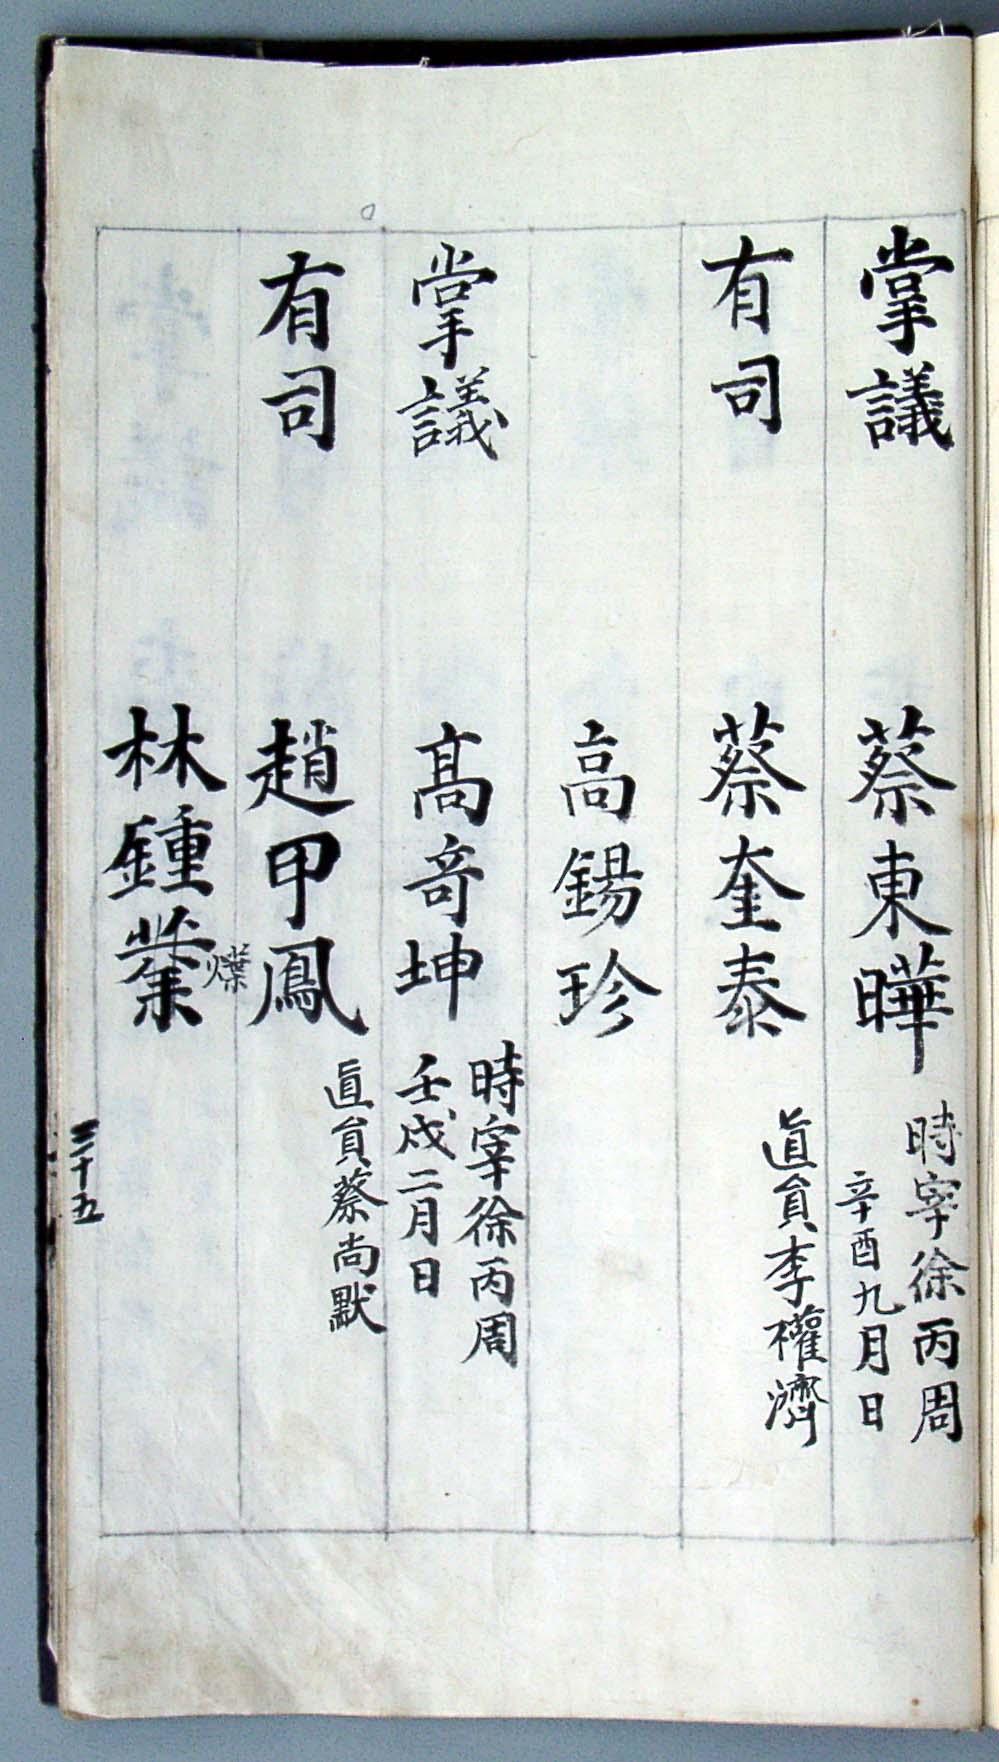 掌議 蔡東曄 時宰徐丙周
辛酉九月日
有司 蔡奎泰 直員李權濟
高錫珍
掌議 髙竒坤 時宰徐丙周
壬戌二月日
有司 趙甲鳳 直員蔡尚默
林鍾業 燁
三十五